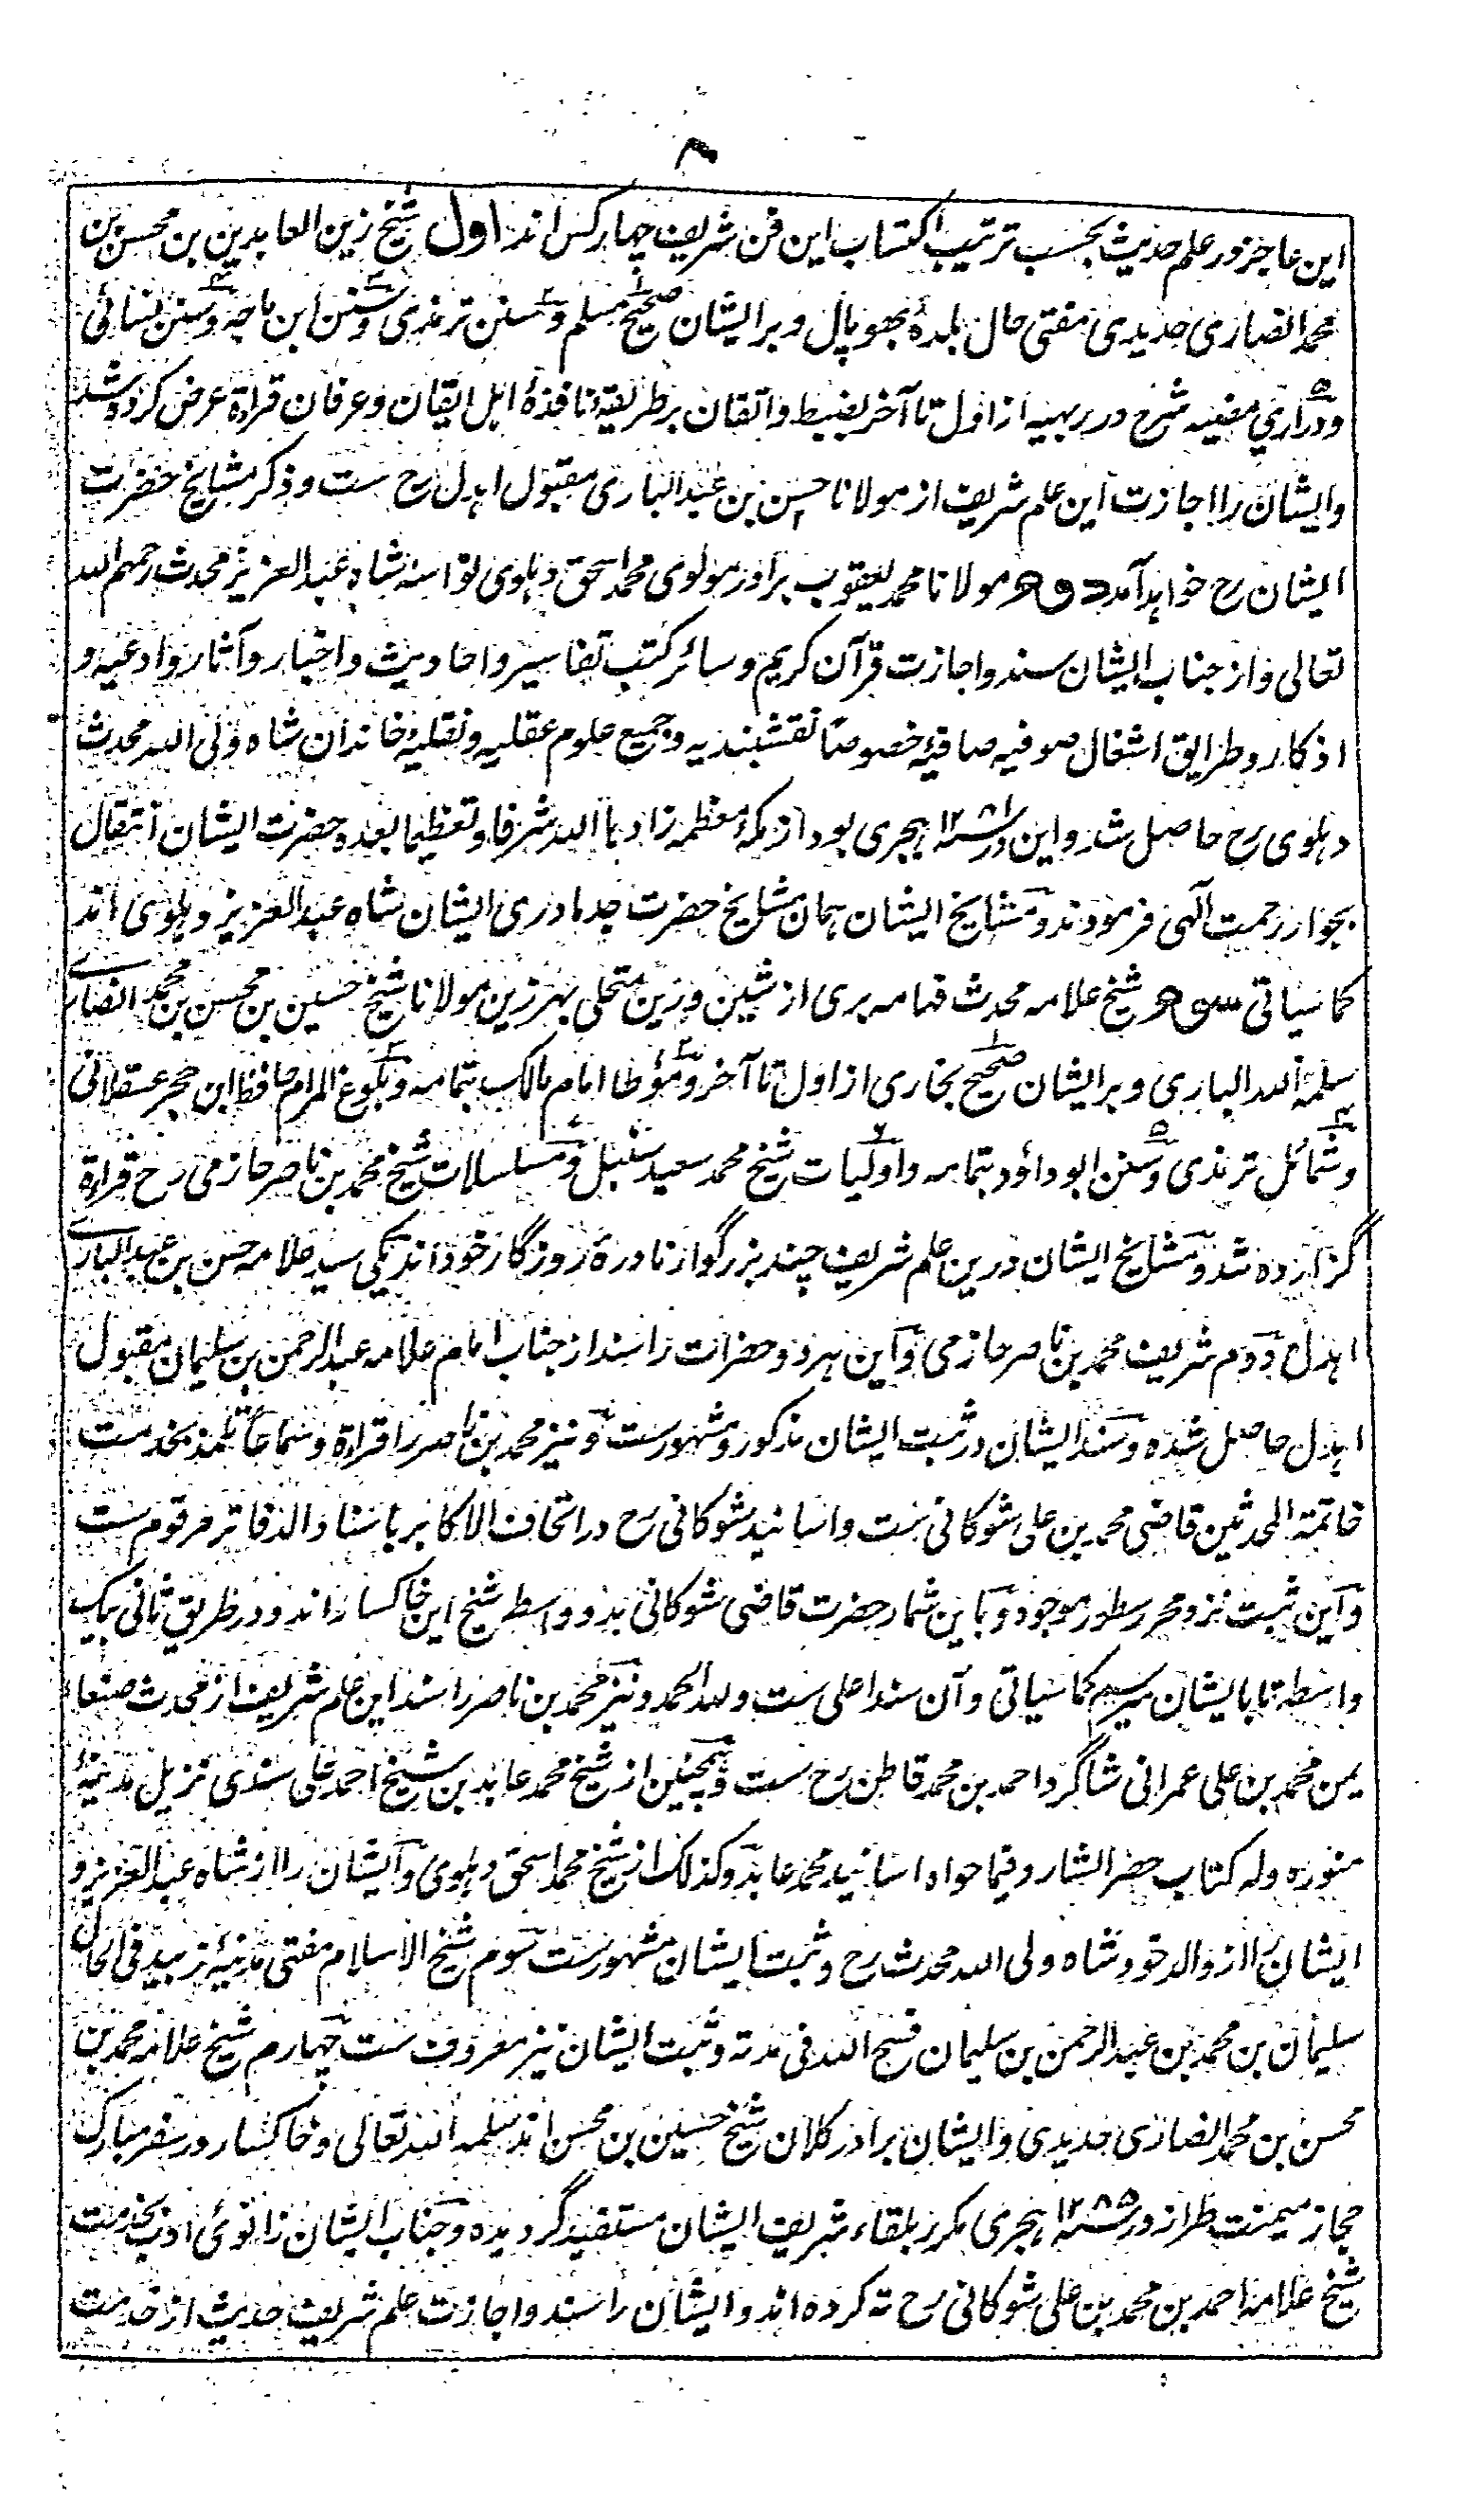 ۳
این عاجز در علم حدیث بحسب ترتیب اکتساب این فن شریف چهار کس اند اول شیخ زین العابدین بن محسن بن
محمد انصاری حدیدی مفتی حال بلدهٔ بهوپال و بر ایشان صحیح مسلم و سنن ترمذی و سنن ابن ماجه و سنن نسائی
و دراری مضیه شرح درر بهیه از اول تا آخر بضبط و اتقان بر طریقهٔ نافذهٔ اهل ایقان و عرفان قراءة عرض کرده شد
و ایشان را اجازت این علم شریف از مولانا حسن بن عبد الباری مقبول اهدل رح ست و ذکر مشایخ حضرت
ایشان رح خواهد آمد دوم مولانا محمد یعقوب برادر مولوی محمد اسحق دهلوی نواسهٔ شاه عبد العزیز محدث رحمهم الله
تعالی و از جناب ایشان سند و اجازت قرآن کریم و سائر کتب تفاسیر و احادیث و اخبار و آثار و ادعیه و
اذکار و طرایق اشغال صوفیه صافیه خصوصاً نقشبندیه و جمیع علوم عقلیه و نقلیهٔ خاندان شاه ولی الله محدث
دهلوی رح حاصل شد و این در ۱۲۸۱ هجری بود از مکهٔ معظمه زادها الله شرفا و تعظیما بعده حضرت ایشان انتقال
بجوار رحمت آلهی فرمودند و مشایخ ایشان همان مشایخ حضرت جد مادری ایشان شاه عبد العزیز دهلوی اند
کما سیاتی سوم شیخ علامه محدث فهامه بری از شین و زین متحلی بهر زین مولانا شیخ حسین بن محسن بن محمد انصاری
سلمه الله الباری و بر ایشان صحیح بخاری از اول تا آخر و مؤطا امام مالک بتمامه و بلوغ المرام حافظ ابن حجر عسقلانی
و شمائل ترمذی و سنن ابوداؤد بتمامه و اولیات شیخ محمد سعید سنبل و مسلسلات شیخ محمد بن ناصر حازمی رح قراءة
گزارده شد و مشایخ ایشان درین علم شریف چند بزرگوار نادرهٔ روزگار خود اند یکی سید علامه حسن بن عبد الباری
اهدل دوم شریف محمد بن ناصر حازمی و این هر دو حضرات را سند از جناب امام علامه عبد الرحمن بن سلیمان مقبول
اهدل حاصل شده و سند ایشان در ثبت ایشان مذکور و مشهور ست و نیز محمد بن ناصر را قراءة و سماعاً تلمذ بخدمت
خاتمة المحدثین قاضی محمد بن علی شوکانی ست و اسانید شوکانی رح در اتحاف الاکابر باسناد الدفاتر مرقوم ست
و این ثبت نزد محرر سطور موجود و باین شمار حضرت قاضی شوکانی بدو واسطه شیخ این خاکسار اند و در طریق ثانی بیک
واسطه تا بایشان میرسیم کما سیاتی و آن سند اعلی ست و لله الحمد و نیز محمد بن ناصر را سند این علم شریف از محدث صنعاء
یمن محمد بن علی عمرانی شاگرد احمد بن محمد قاطن رح ست و همچنین از شیخ محمد عابد بن شیخ احمد علی سندی نزیل مدینهٔ
منوره و له کتاب حصر الشارد فیما حواه اسانید محمد عابد و کذلک از شیخ محمد اسحق دهلوی و ایشان را از شاه عبد العزیز و
ایشان را از والد خود شاه ولی الله محدث رح و ثبت ایشان مشهور ست سوم شیخ الاسلام مفتی مدینهٔ زبید فی الحال
سلیمان بن محمد بن عبد الرحمن بن سلیمان فسح الله فی مدته و ثبت ایشان نیز معروف ست چهارم شیخ علامه محمد بن
محسن بن محمد انصاری حدیدی و ایشان برادر کلان شیخ حسین بن محسن اند سلمه الله تعالی و خاکسار در سفر مبارک
حجاز میمنت طراز در ۱۲۸۵ هجری مکرر بلقاء شریف ایشان مستفید گردیده و جناب ایشان زانوئ ادب بخدمت
شیخ علامه احمد بن محمد بن علی شوکانی رح ته کرده اند و ایشان را سند و اجازت علم شریف حدیث از خدمت